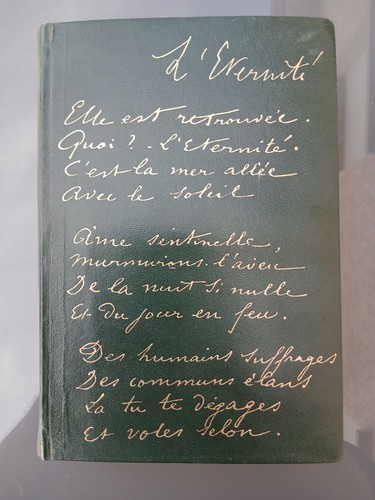 L'Eternité
Elle est retrouvée.
Quoi ? - L'Eternité.
C'est la mer allée
Avec le soleil
Ame sentinelle,
Murmurons l'aveu
De la nuit si nulle
Et du jour en feu.
Des humains suffrages
Des communs élans
La tu te dégages
Et voles selon.